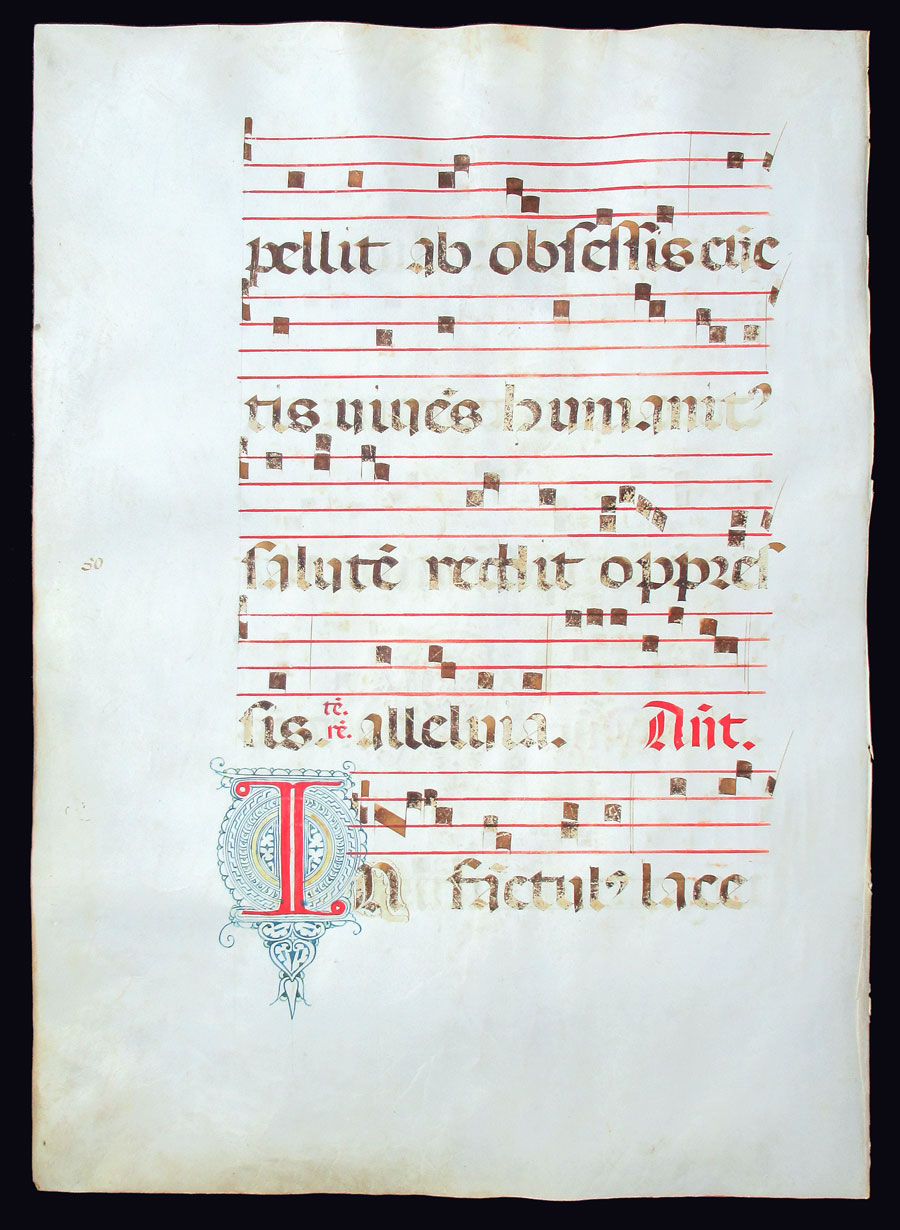 pellit ab obſeſſis cūc
tis uires humanitꝰ
ſalutē reddit oppreſ
ſis. tē. rē. alleluia. Añt.
IN fāctulꝰ lace